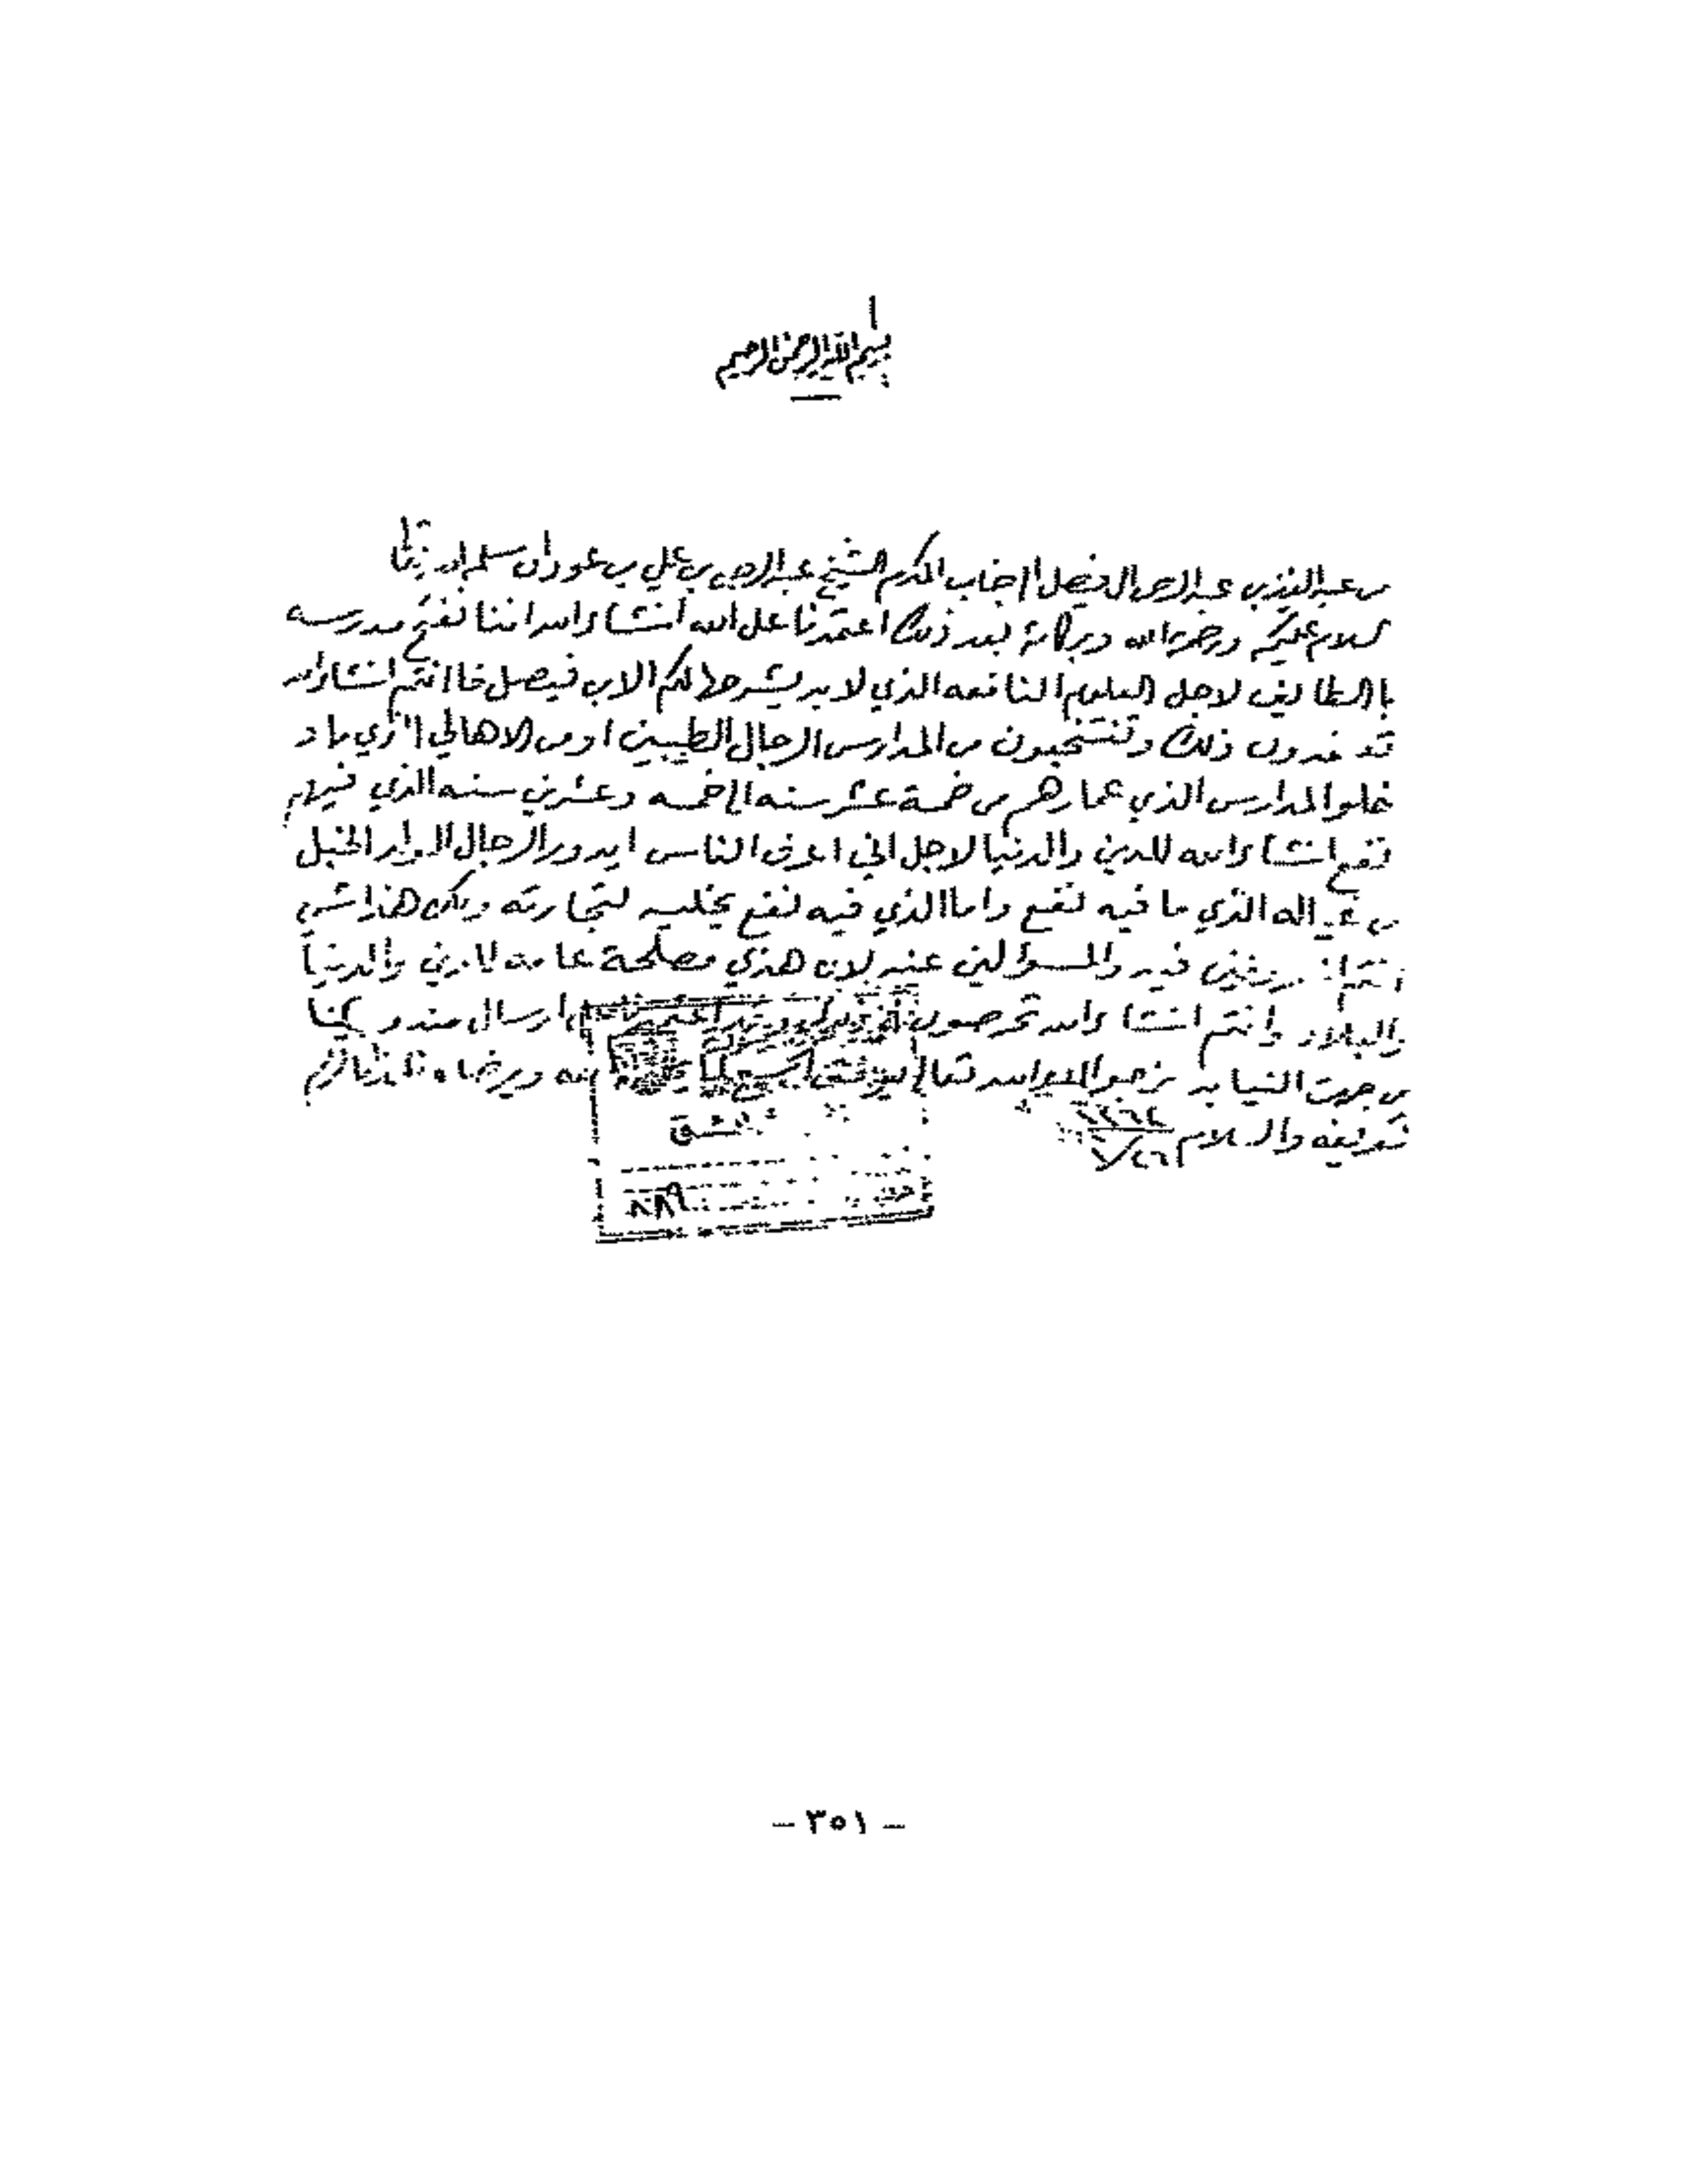 بسم الله الرحمن الرحيم
من عبد العزيز بن عبد الرحمن الفيصل الى جناب المكرم الشيخ عبد الرحمن بن علي بن عودان سلمه الله تعالى
السلام عليكم ورحمة الله وبركاته بعد ذلك اعتمدنا على الله انشاء الله اننا نفتح مدرسه
بالطايف لاجل العلوم النافعه الذي لا بد يشرحها لكم الابن فيصل فاانتم انشاء الله
ذلك وتنتخبون من المدارس الرجال الطيبين او من الاهالي الذي ما د
خلوا المدارس الذي عمارهم من خمسة عشر سنه الى خمسه وعشرين سنه الذي فيهم
نفع انشاء الله للدين والدنيا لاجل اني اعرف الناس ايدور الرجال الولد الخبل
من عياله الذي ما فيه نفع واما الذي فيه نفع يخليه لتجارته ولكن هذا شي
انتم فيه والمسؤالين عنه لان هذي مصلحة عامه للدين والدنيا
والبلاد وانتم انشاء الله تحرصون ارسال مندوبكنا
من جهت النيابه نرجو الله تعالى
توفيقه والسلام
٢٦/٧
٨٨٩
— ٣٥١ —